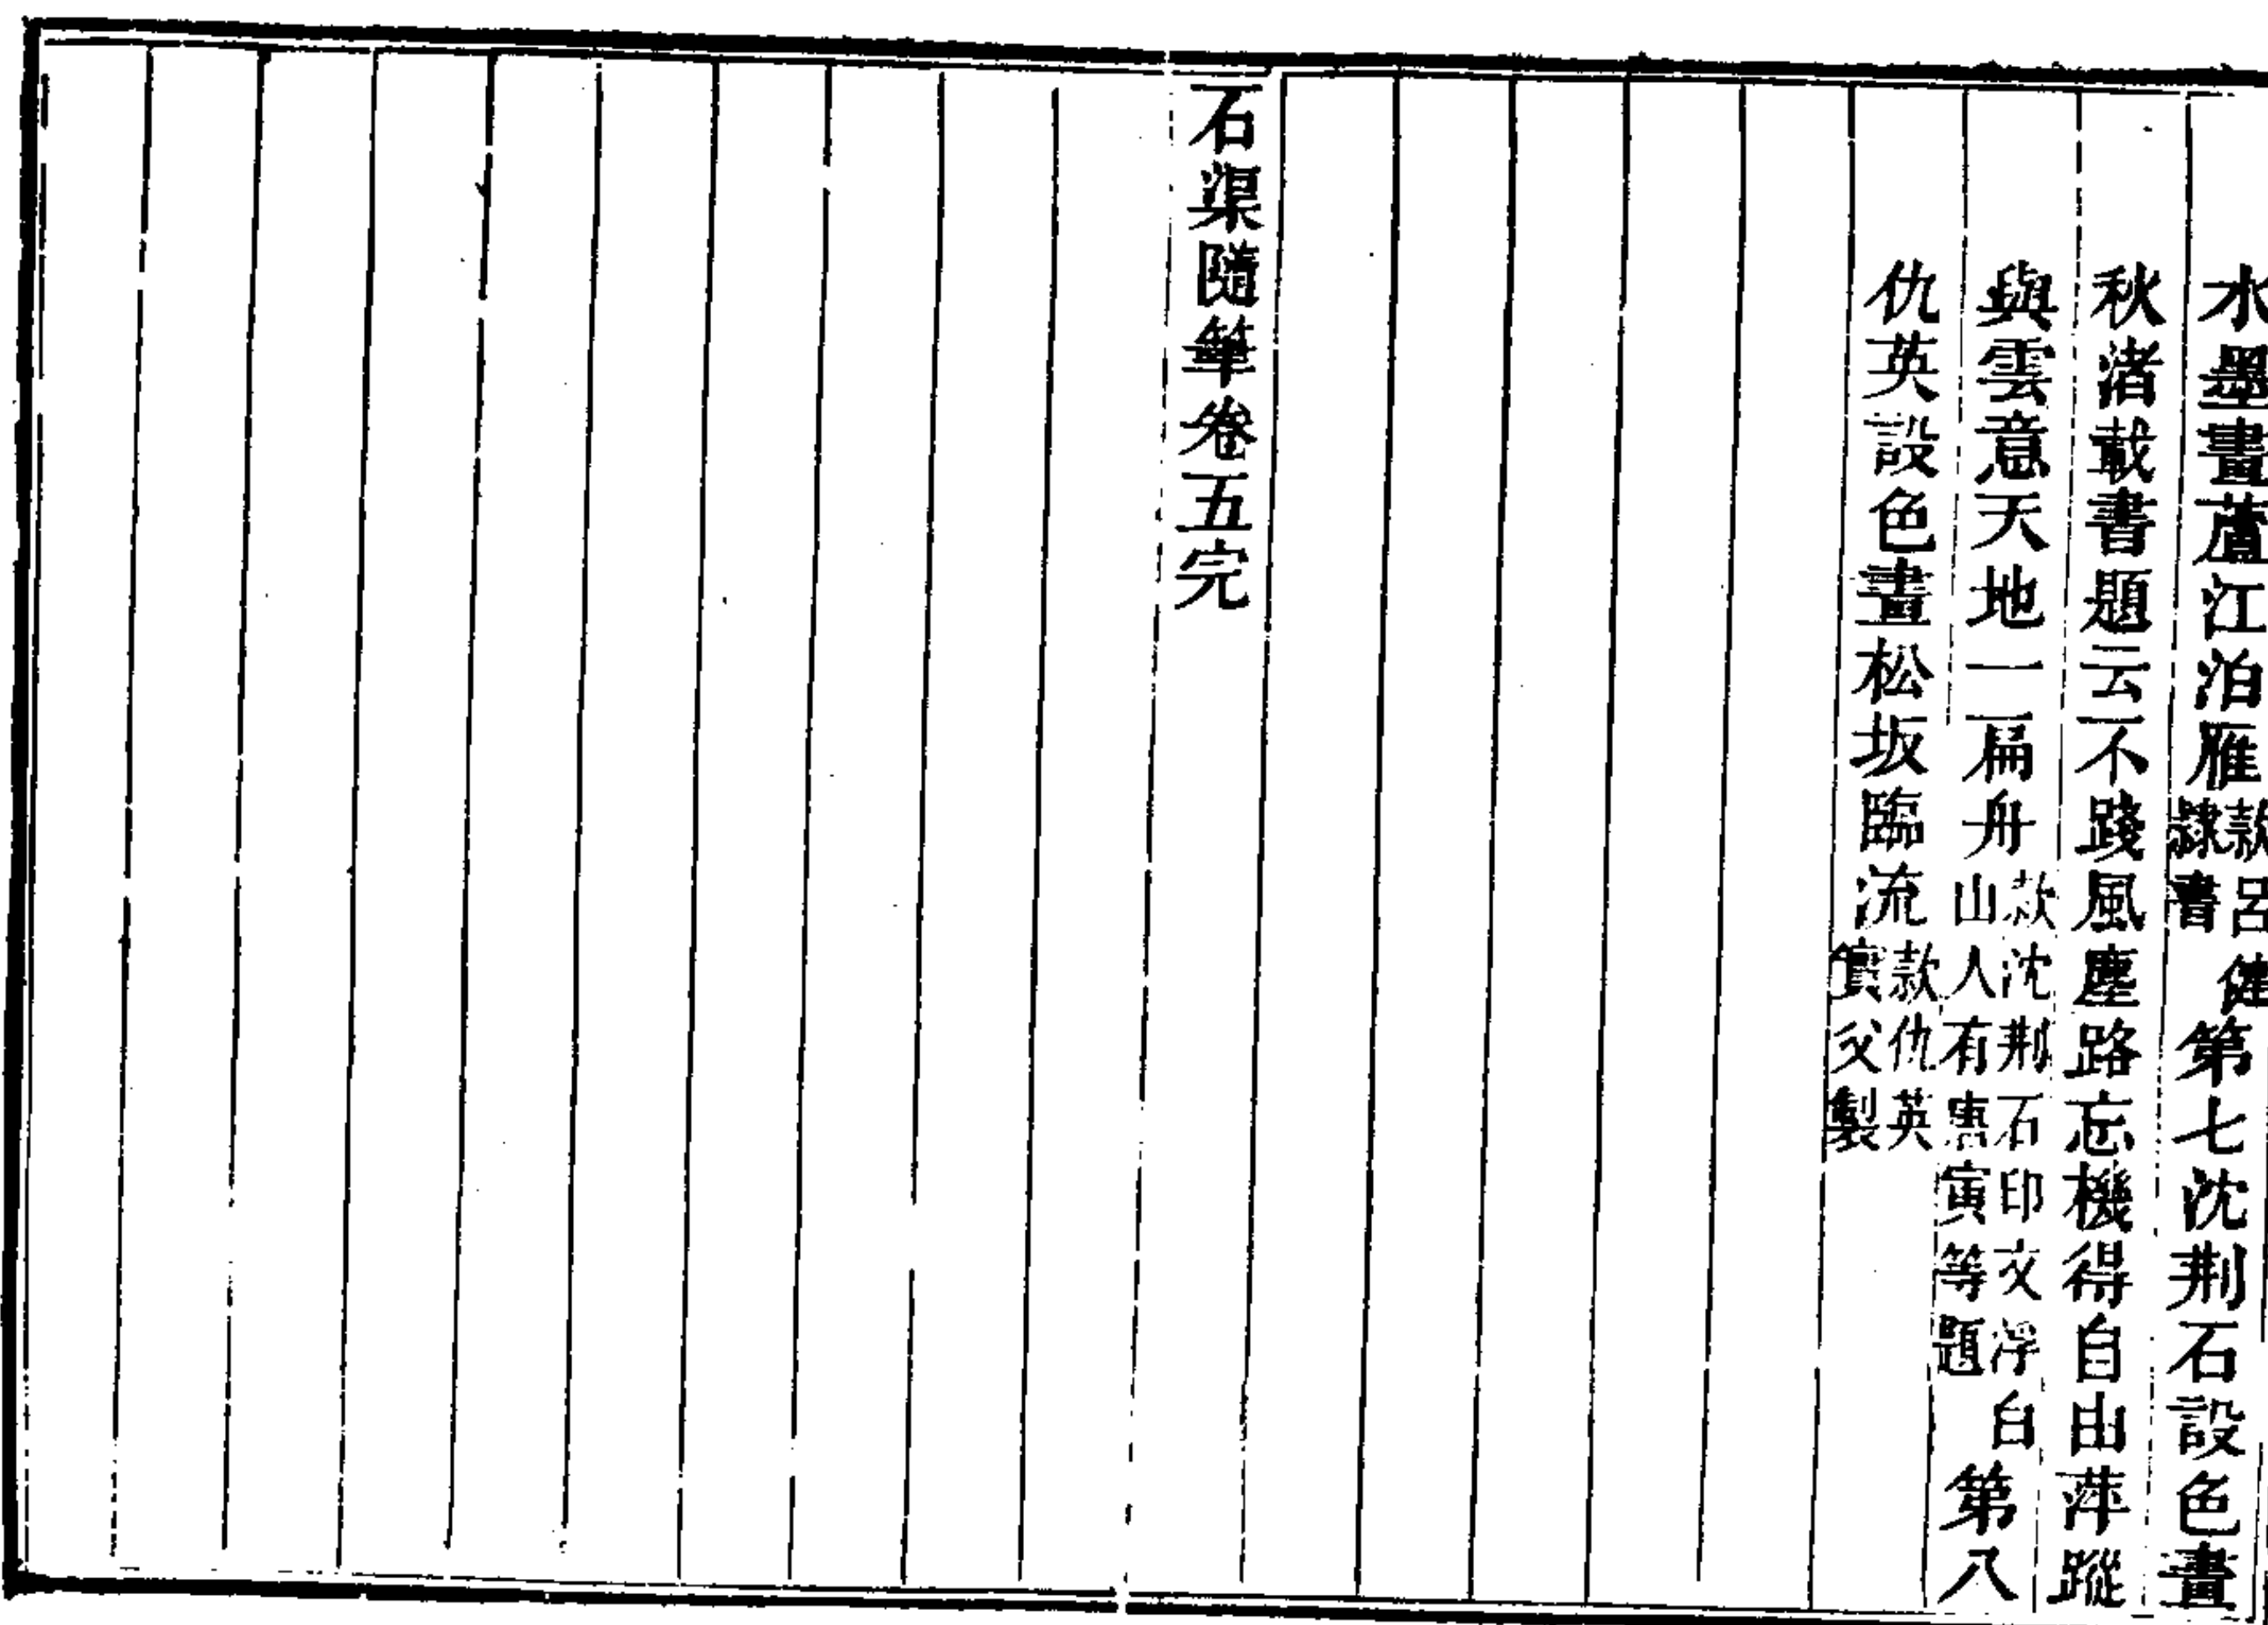 水墨畫蘆江泊雁款呂健隸書第七沈荆石設色畫
秋渚載書題云不踐風塵路忘機得自由萍蹤
與雲意天地一扁舟款沈荆石印文浮白山人有唐寅等題第八
仇英設色畫松坂臨流款仇英實父製
石渠隨筆卷五完